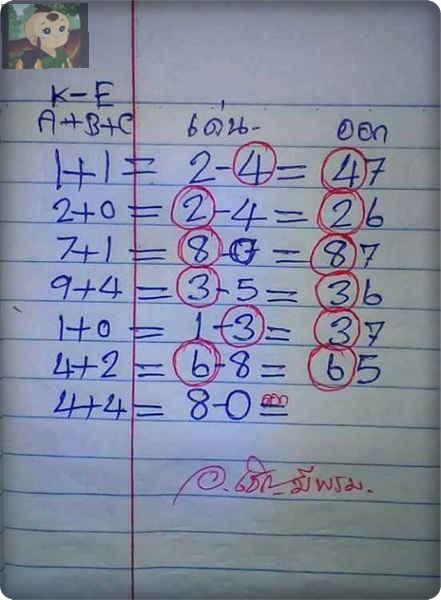 K-E
A+B+C เด่น- ออก
1+1 = 2-4 = 47
2+0 = 2-4 = 26
7+1 = 8-0 = 87
9+4 = 3-5 = 36
1+0 = 1-3 = 37
4+2 = 6-8 = 65
4+4 = 8-0 =
อ. มีพรม.